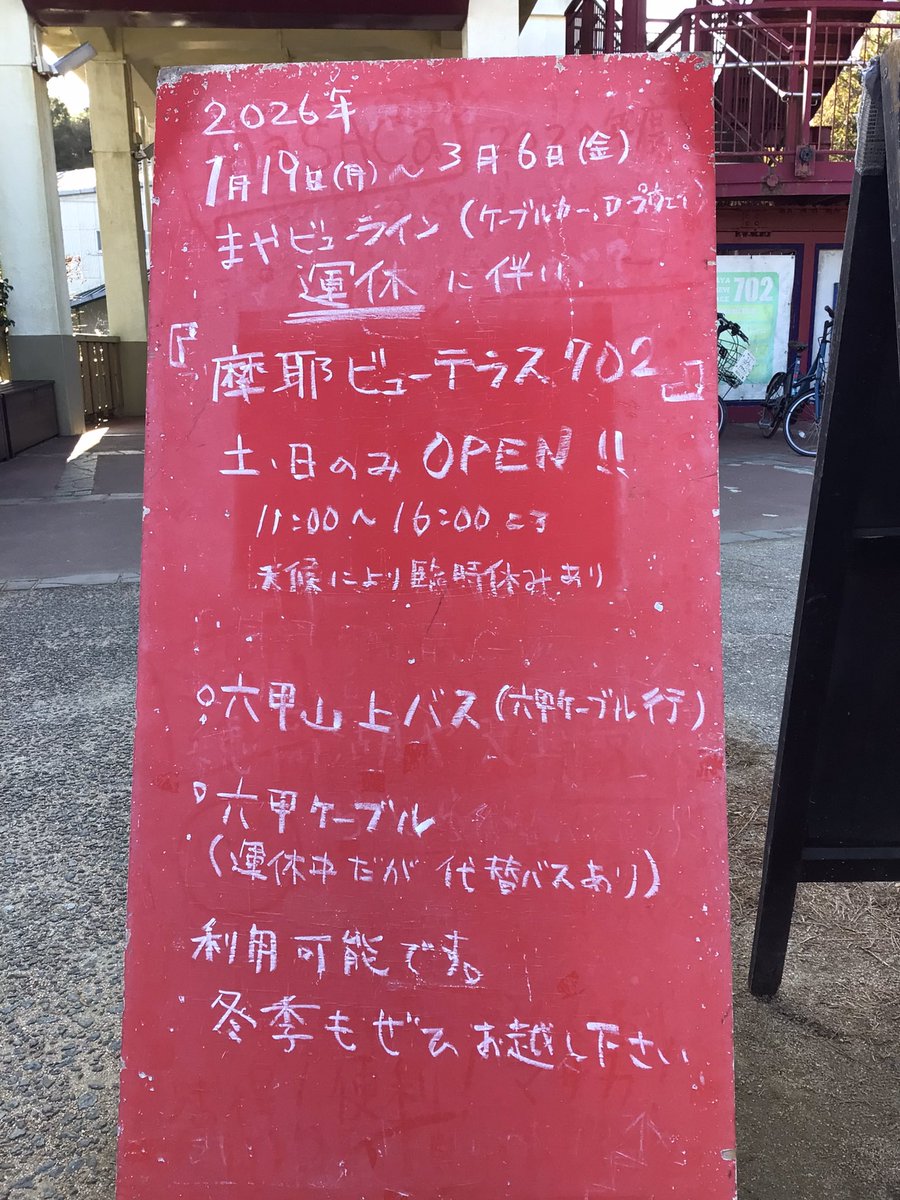 2026年
1月19日(月)～3月6日(金)
まやビューライン(ケーブルカー、ロープウェイ)
運休に伴い、
『摩耶ビューテラス702』
土・日のみOPEN!!
11:00～16:00ころ
天候により臨時休みあり
○六甲山上バス(六甲ケーブル行)
○六甲ケーブル
(運休中だが代替バスあり)
利用可能です。
冬季もぜひお越し下さい
702